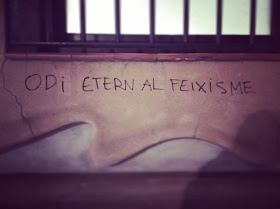 ODi ETERN AL FEIXISME